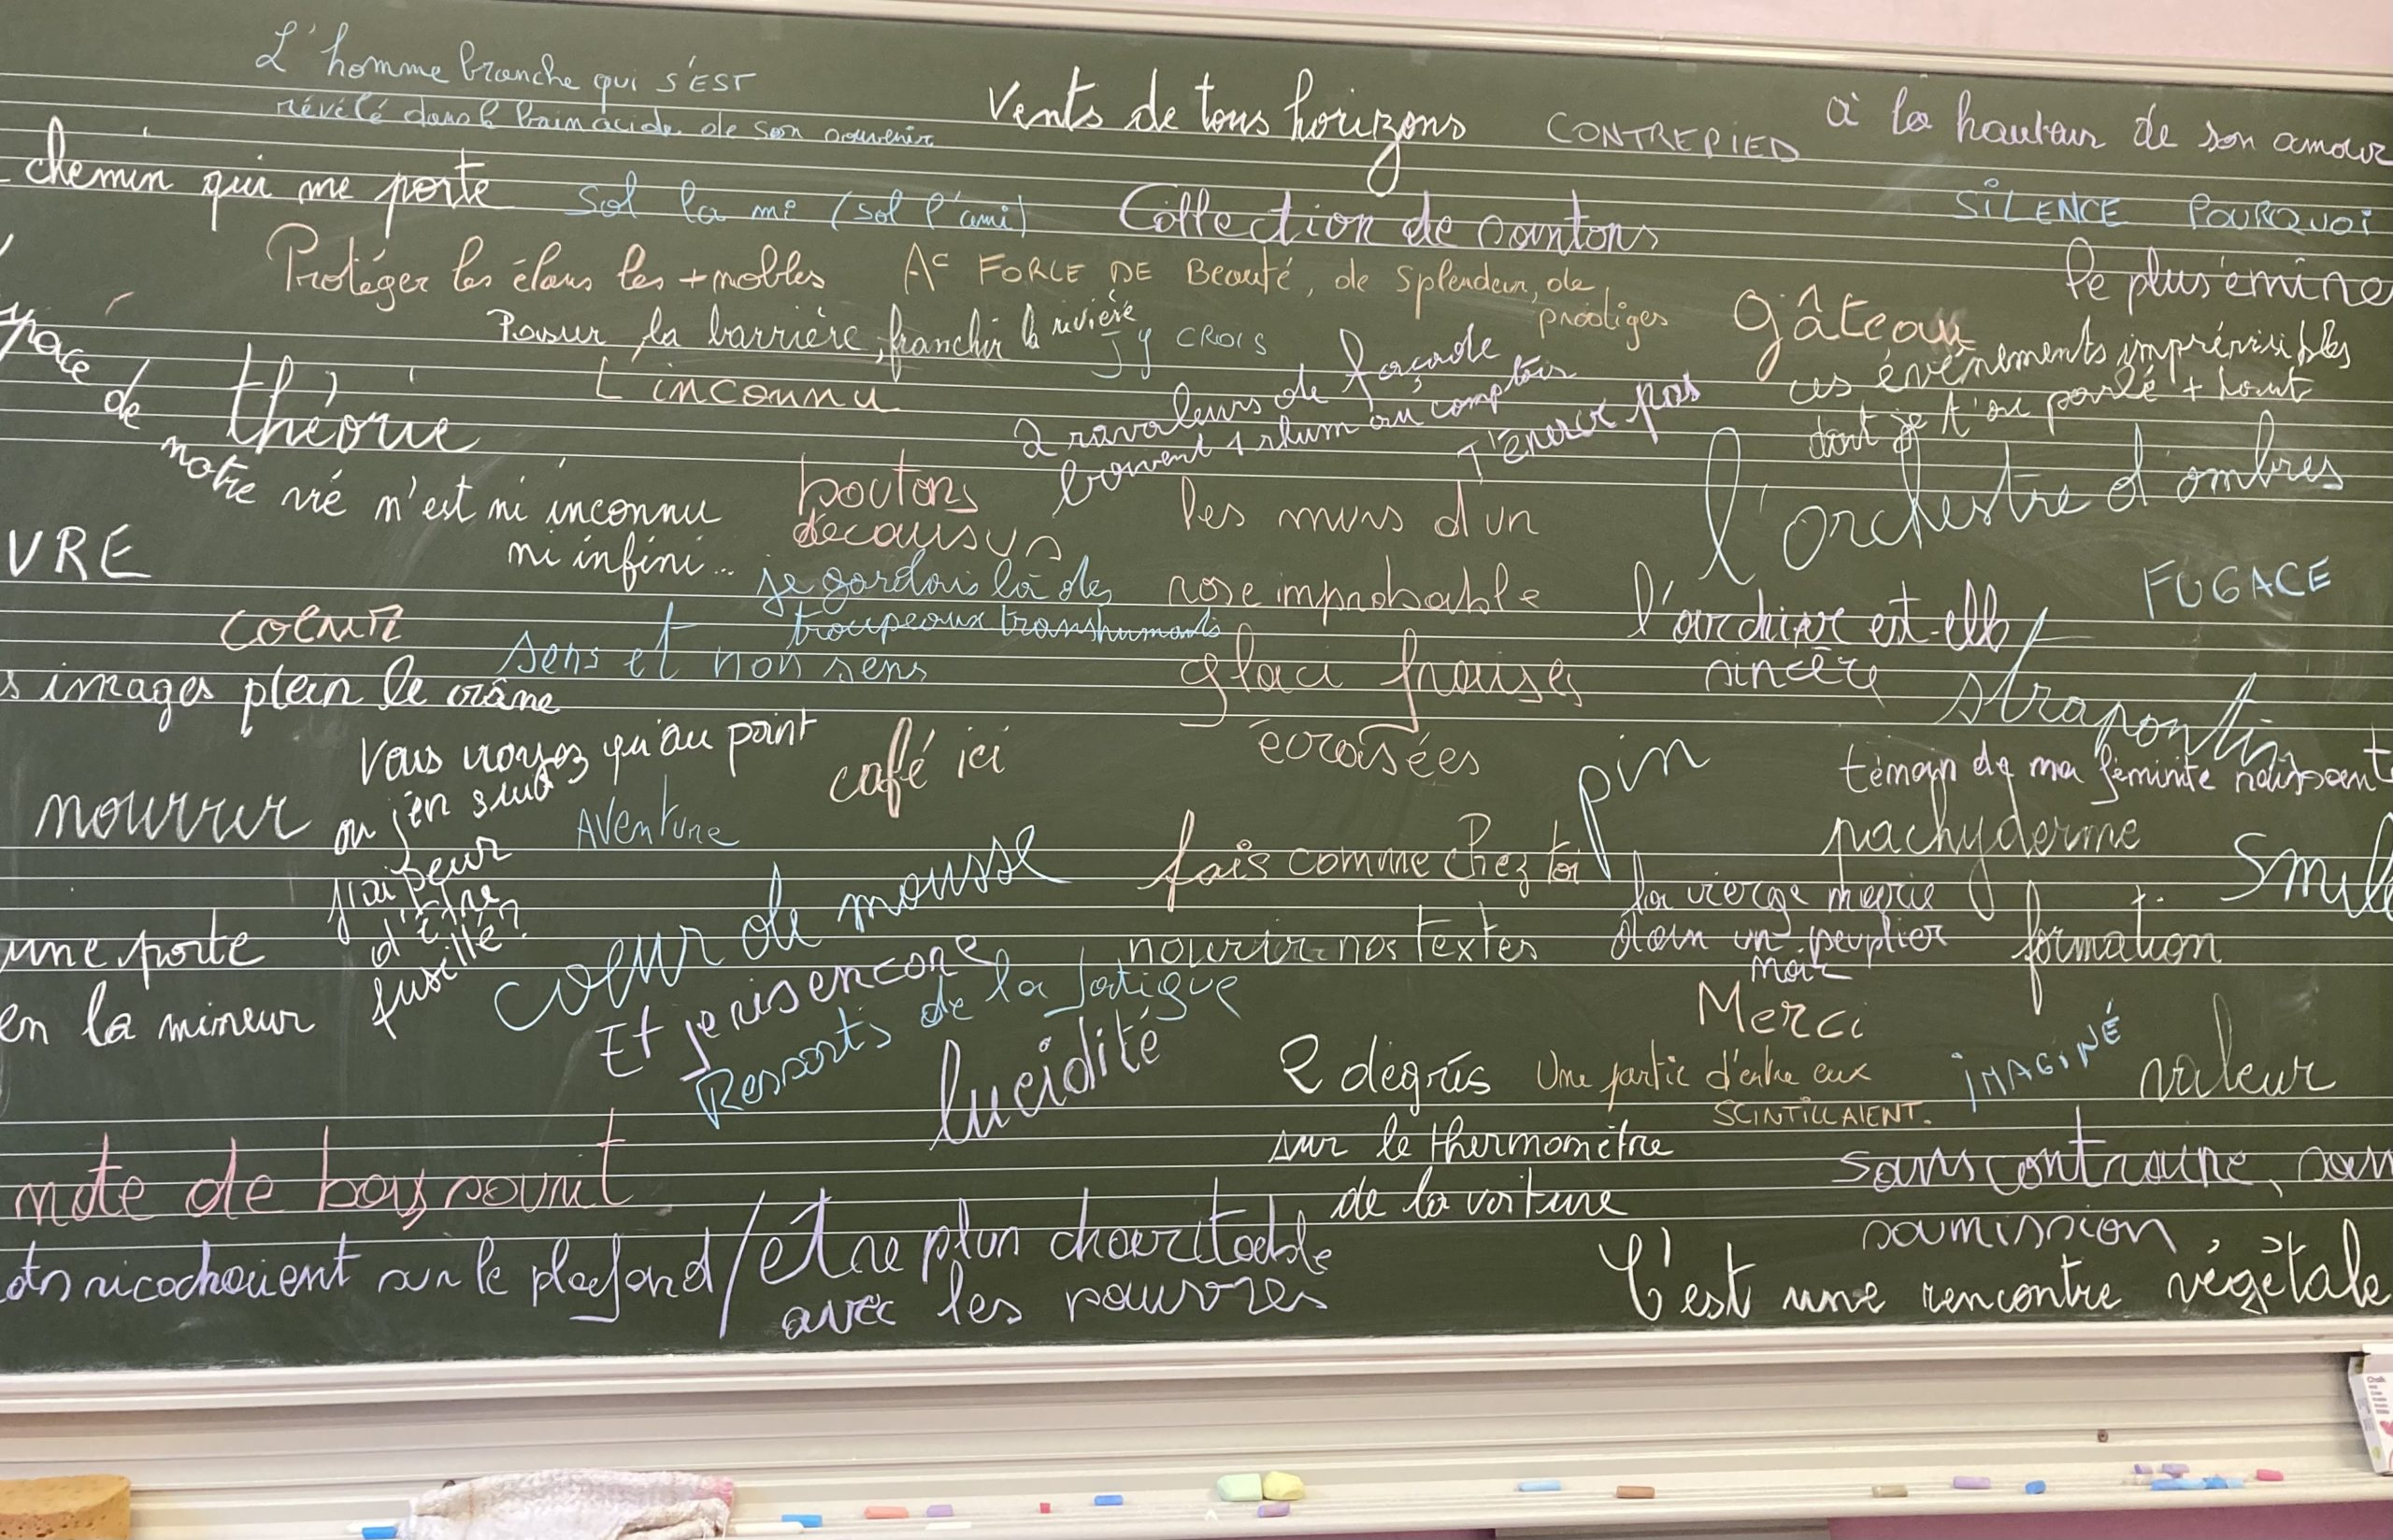 L'homme branche qui s'EST
révélé dans le bain acide de son souvenir
Vents de tous horizons
CONTREPIED
à la hauteur de son amour
chemin qui me porte
Sol la mi (sol l'ami)
Collection de santons
SILENCE POURQUOI
Protéger les élans les + nobles
A FORCE DE Beauté, de Splendeur, de
prodiges
gâteau
le plus émine
Passer la barrière, franchir la rivière
J'y CROIS
ces événements imprévisibles
dont je t'ai parlé + haut
L'inconnu
2 ravaleurs de façade
boivent 1 rhum au comptoir
T'énerve pas
théorie
de
notre vie n'est ni inconnu
ni infini...
boutons
décousus
les murs d'un
rose improbable
glace fraises
écrasées
l'orchestre d'ombres
VRE
je gardais là des
troupeaux transhumants
FUGACE
coeur
sens et non sens
l'archive est-elle
sincère
s images plein le crâne
strapontin
Vous voyez qu'au point
où j'en suis
j'ai peur
d'être
fusillé?
café ici
pin
témoin de ma féminité naissant
nourrir
AVENTURE
pachyderme
Smile
coeur de mousse
fais comme chez toi
la vierge marie
dans un peuplier
noir
formation
une porte
en la mineur
nourrir nos textes
Et je ris encore
Ressorts de la fatigue
Merci
lucidité
2 degrés
sur le thermomètre
de la voiture
Une partie d'entre eux
SCINTILLAIENT.
IMAGINÉ
valeur
note de bas
sans contrainte, san
soumission
ricochaient sur le plafond
être plus charitable
avec les pauvres
C'est une rencontre végétale